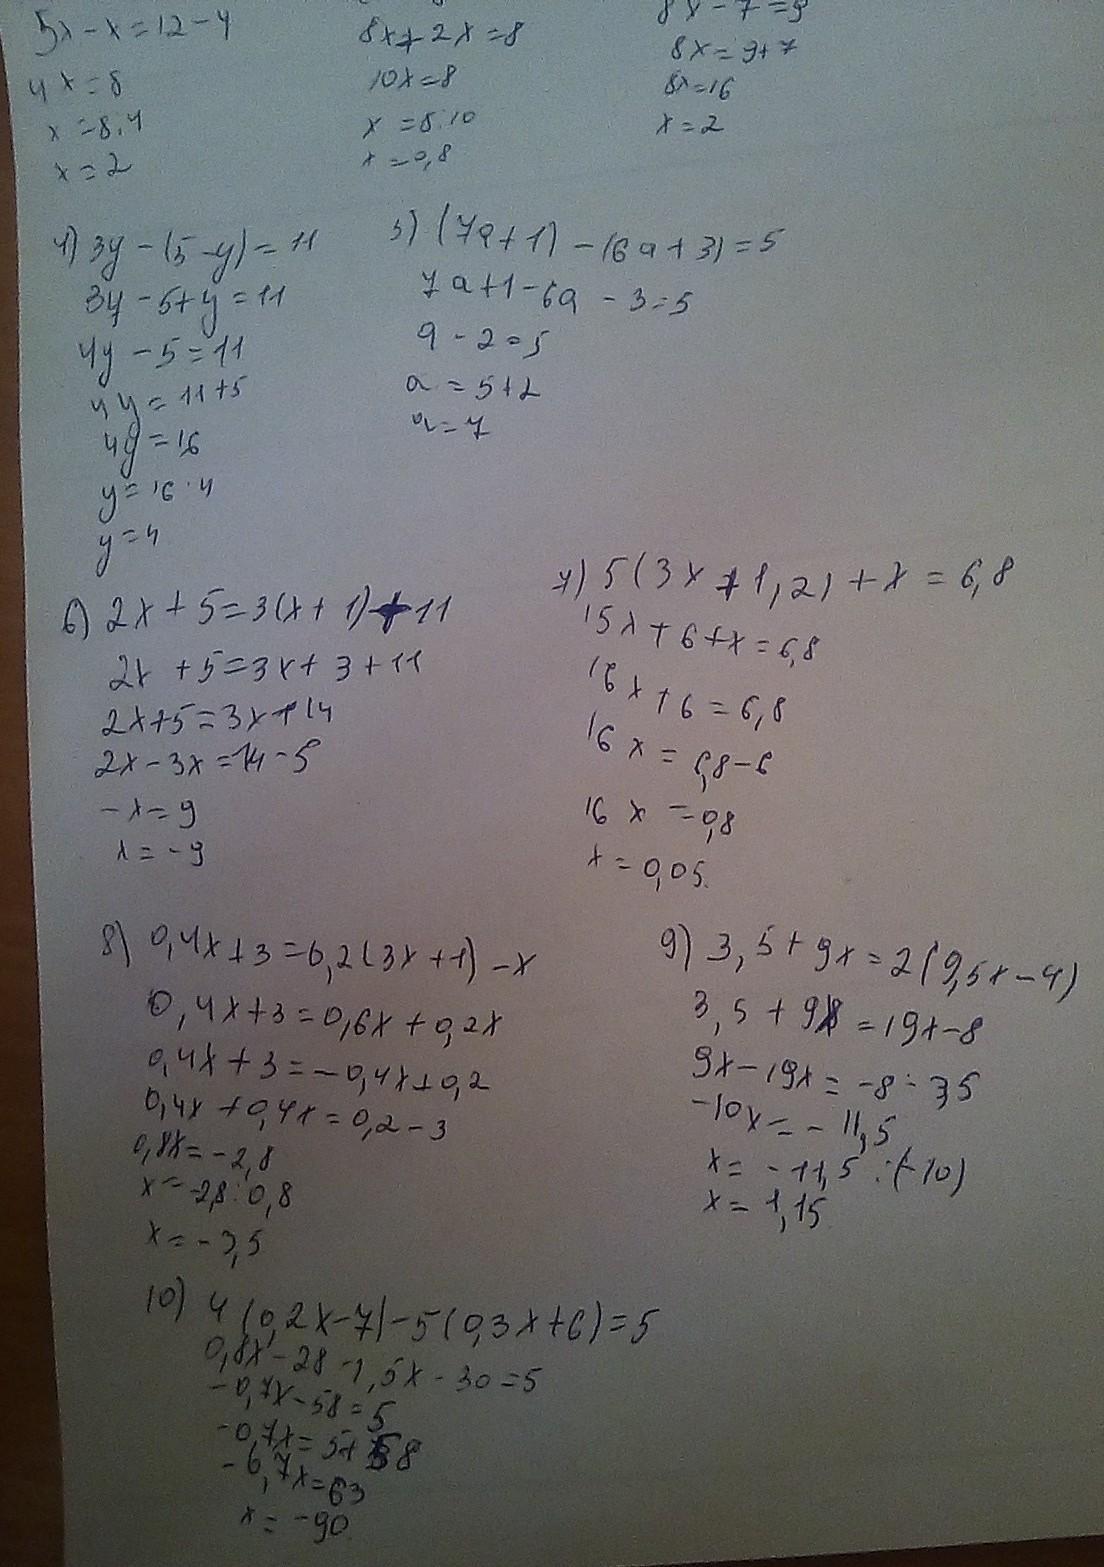 5x-x=12-4
4x=8
x=8:4
x=2
8x+2x=8
10x=8
x=8:10
x=0,8
8x-7=9
8x=9+7
8x=16
x=2
4) 3y-(5-y)=11
3y-5+y=11
4y-5=11
4y=11+5
4y=16
y=16:4
y=4
5) (7a+1)-(6a+3)=5
7a+1-6a-3=5
a-2=5
a=5+2
a=7
6) 2x+5=3(x+1)+11
2x+5=3x+3+11
2x+5=3x+14
2x-3x=14-5
-x=9
x=-9
7) 5(3x+1,2)+x=6,8
15x+6+x=6,8
16x+6=6,8
16x=6,8-6
16x=0,8
x=0,05.
8) 0,4x+3=0,2(3x+1)-x
0,4x+3=0,6x+0,2x
0,4x+3=-0,4x+0,2
0,4x+0,4x=0,2-3
0,8x=-2,8
x=-2,8:0,8
x=-3,5
9) 3,5+9x=2(9,5x-4)
3,5+9x=19x-8
9x-19x=-8-3,5
-10x=-11,5
x=-11,5:(-10)
x=1,15
10) 4(0,2x-7)-5(0,3x+6)=5
0,8x-28-1,5x-30=5
-0,7x-58=5
-0,7x=5+58
-0,7x=63
x=-90